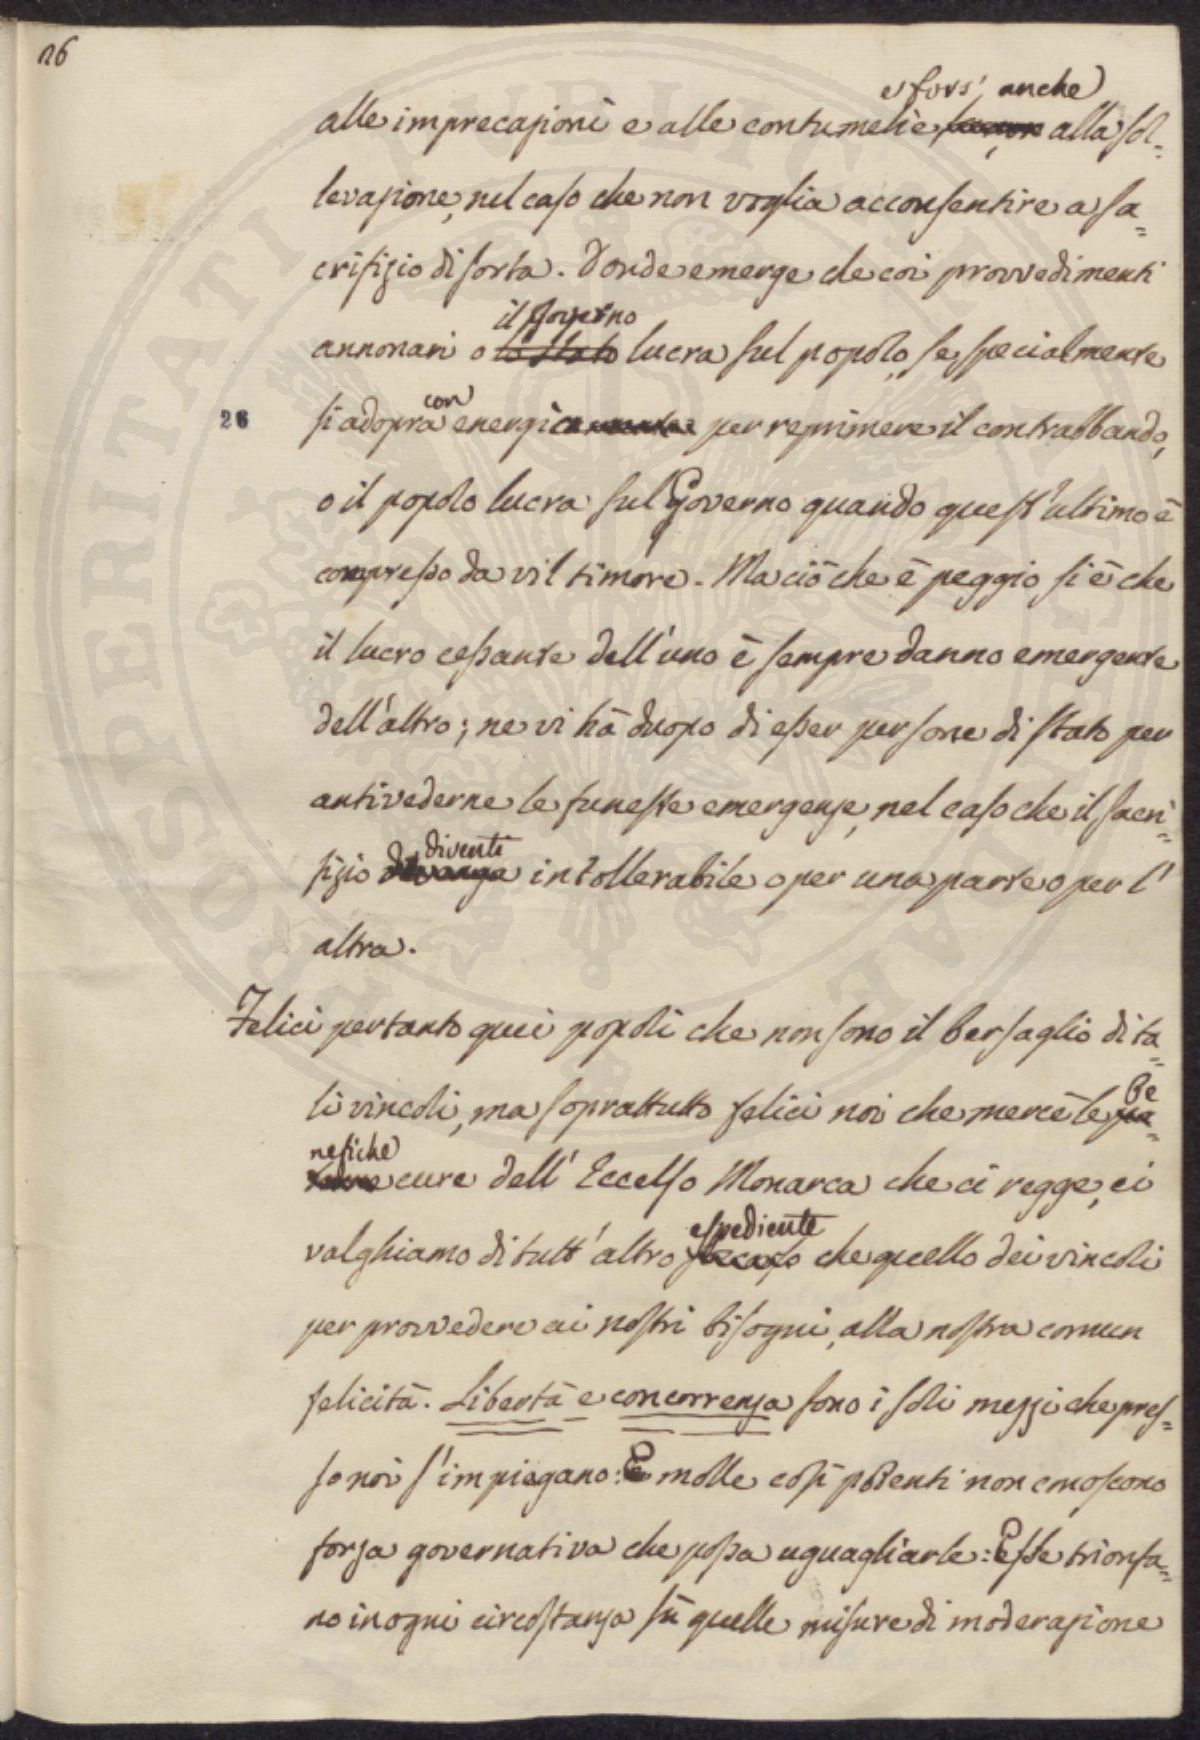 26
e fors' anche
alle imprecazioni e alle contumelie alla sol=
levazione, nel caso che non voglia acconsentire a sa=
crifizio di sorta. Donde emerge che coi provvedimenti
il Governo
annonari o lo Stato lucra sul popolo, se specialmente
con
26 si adopra energica mente per reprimere il contrabbando,
o il popolo lucra sul Governo quando quest'ultimo è
compresso da vil timore. Ma ciò che è peggio si è che
il lucro cessante dell'uno è sempre danno emergente
dell'altro; ne vi hà duopo di esser persone di stato per
antivederne le funeste emergenze, nel caso che il sacri=
diventi
fizio divenga intollerabile o per una parte o per l'
altra.
Felici pertanto quei popoli che non sono il bersaglio di ta=
be
li vincoli, ma soprattutto felici noi che mercè le pa=
nefiche
terne cure dell' Eccelso Monarca che ci regge, ci
espediente
valghiamo di tutt'altro che quello dei vincoli
per provvedere ai nostri bisogni, alla nostra comun
felicità. Libertà e concorrenza sono i soli mezzi che pres=
so noi s'impiegano: E molle così potenti non conoscono
forza governativa che possa uguagliarle: Esse trionfa=
no in ogni circostanza sù quelle misure di moderazione
PROSPERITATI PUBLICAE